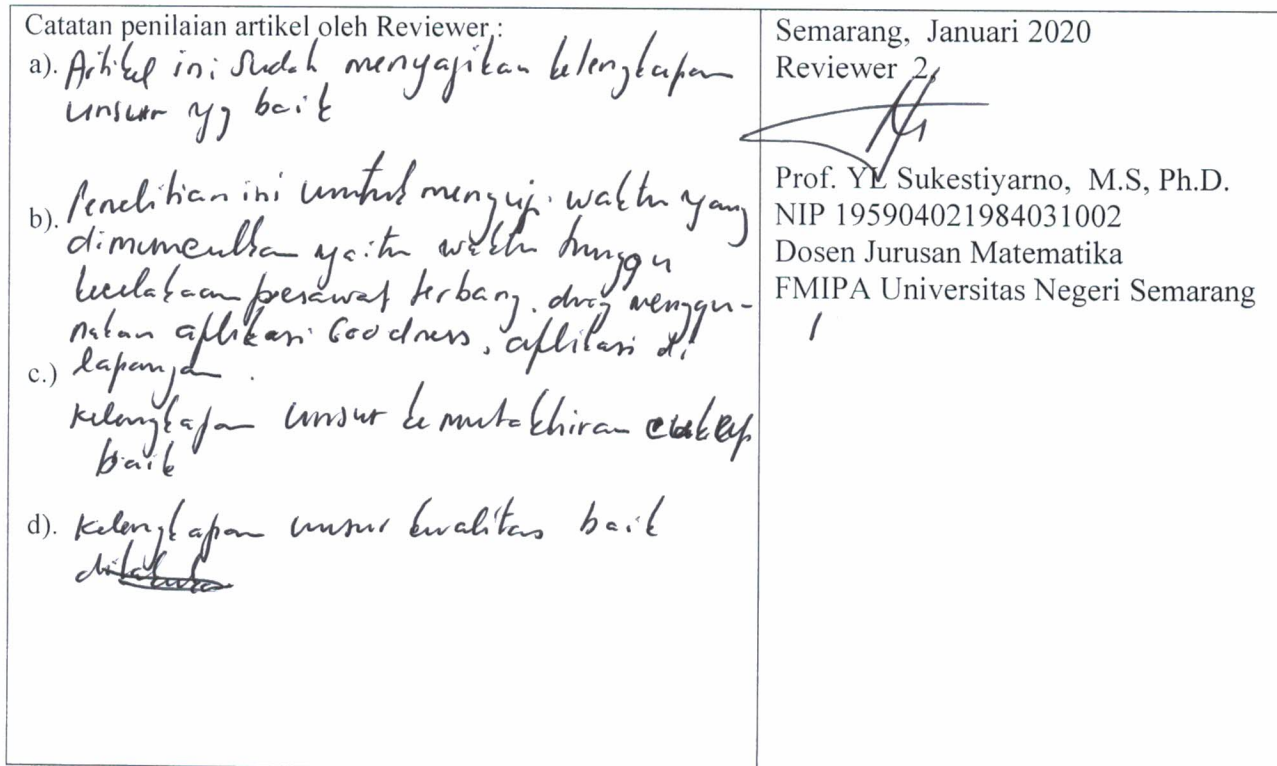 Catatan penilaian artikel oleh Reviewer :
a). Artikel ini sudah menyajikan kelengkapan
unsur yg baik
b). Penelitian ini untuk menguji waktu yang
yaitu waktu tunggu
kecelakaan pesawat terbang. menggu-
nakan aplikasi Goodness, aplikasi di
c.) lapangan.
kelengkapan unsur kemutakhiran cukup
baik
d). kelengkapan unsur kualitas baik
Semarang, Januari 2020
Reviewer 2,
Prof. YL Sukestiyarno, M.S, Ph.D.
NIP 195904021984031002
Dosen Jurusan Matematika
FMIPA Universitas Negeri Semarang